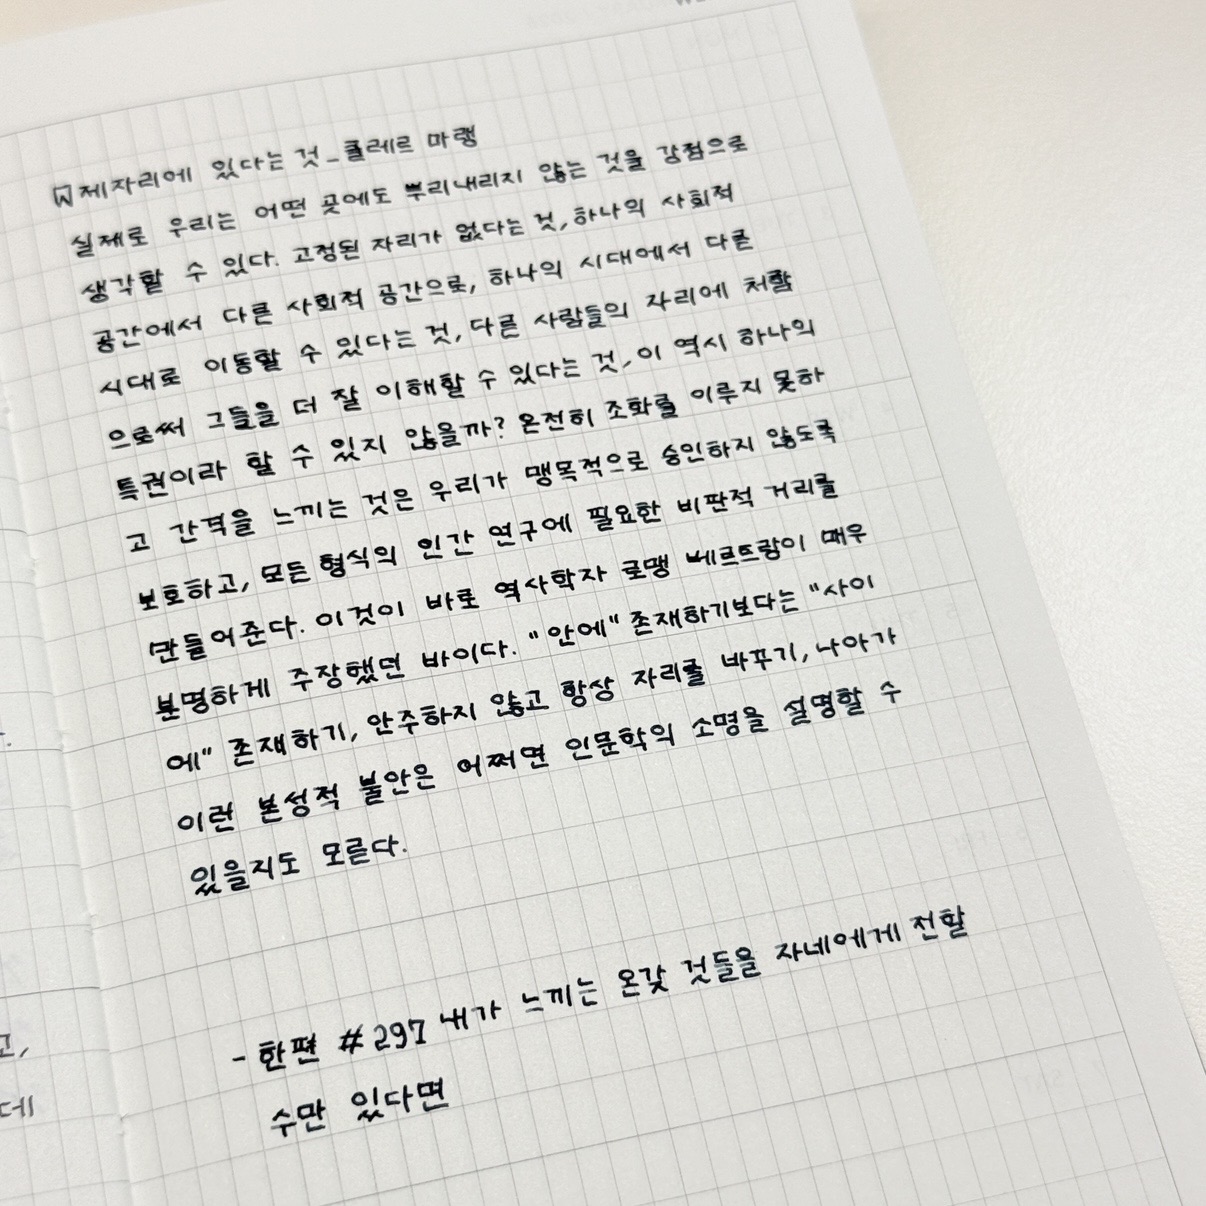 제자리에 있다는 것 - 클레르 마랭
실제로 우리는 어떤 곳에도 뿌리내리지 않는 것을 강점으로
생각할 수 있다. 고정된 자리가 없다는 것, 하나의 사회적
공간에서 다른 사회적 공간으로, 하나의 시대에서 다른
시대로 이동할 수 있다는 것, 다른 사람들의 자리에 처함
으로써 그들을 더 잘 이해할 수 있다는 것, 이 역시 하나의
특권이라 할 수 있지 않을까? 온전히 조화를 이루지 못하
고 간격을 느끼는 것은 우리가 맹목적으로 승인하지 않도록
보호하고, 모든 형식의 인간 연구에 필요한 비판적 거리를
만들어준다. 이것이 바로 역사학자 로맹 베르트랑이 매우
분명하게 주장했던 바이다. "안에" 존재하기보다는 "사이
에" 존재하기, 안주하지 않고 항상 자리를 바꾸기, 나아가
이런 본성적 불안은 어쩌면 인문학의 소명을 설명할 수
있을지도 모른다.
- 한편 #297 내가 느끼는 온갖 것들을 자네에게 전할
수만 있다면
고,
데